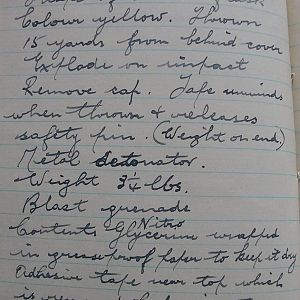 Colour yellow. Thrown
15 yards from behind cover
Explode on impact
Remove cap. Tafe unwinds
when thrown & releases
safety pin. (Weight on end.)
Metal detonator.
Weight 3¼ lbs.
Blast grenade
Contents Nitro
Glycerine wrapped
in greaseproof paper to keep it dry
adhesive tape near top which